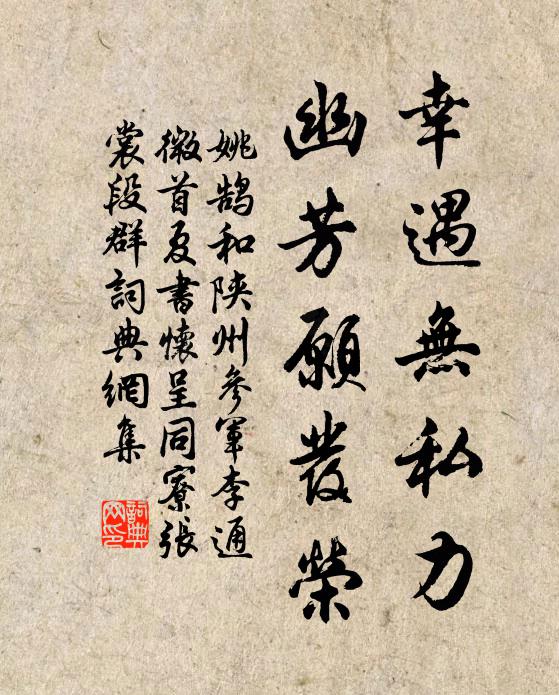 幸遇無私力
幽芳願發榮
姚鵠和陝州參軍李通
微首夏書懷呈同寮張
裳段群詞典網集
詞典
网印